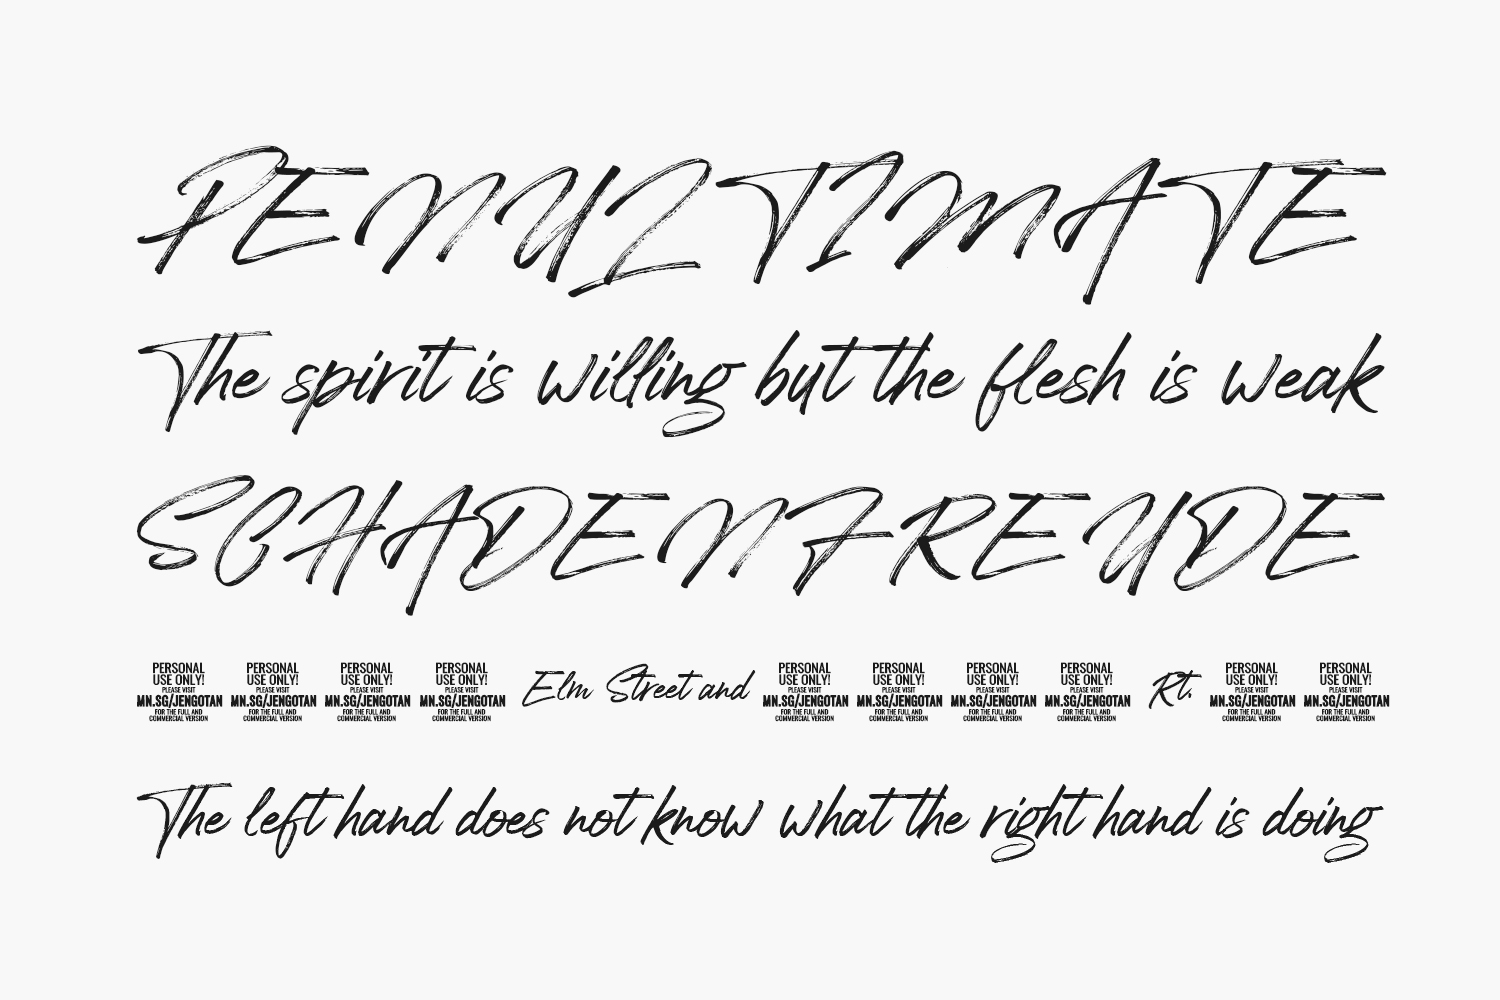 PENULTIMATE
The spirit is willing but the flesh is weak
SCHADENFREUDE
PERSONAL USE ONLY! PLEASE VISIT MN.SG/JENGOTAN FOR THE FULL AND COMMERCIAL VERSION PERSONAL USE ONLY! PLEASE VISIT MN.SG/JENGOTAN FOR THE FULL AND COMMERCIAL VERSION PERSONAL USE ONLY! PLEASE VISIT MN.SG/JENGOTAN FOR THE FULL AND COMMERCIAL VERSION PERSONAL USE ONLY! PLEASE VISIT MN.SG/JENGOTAN FOR THE FULL AND COMMERCIAL VERSION Elm Street and PERSONAL USE ONLY! PLEASE VISIT MN.SG/JENGOTAN FOR THE FULL AND COMMERCIAL VERSION PERSONAL USE ONLY! PLEASE VISIT MN.SG/JENGOTAN FOR THE FULL AND COMMERCIAL VERSION PERSONAL USE ONLY! PLEASE VISIT MN.SG/JENGOTAN FOR THE FULL AND COMMERCIAL VERSION PERSONAL USE ONLY! PLEASE VISIT MN.SG/JENGOTAN FOR THE FULL AND COMMERCIAL VERSION Rt. PERSONAL USE ONLY! PLEASE VISIT MN.SG/JENGOTAN FOR THE FULL AND COMMERCIAL VERSION PERSONAL USE ONLY! PLEASE VISIT MN.SG/JENGOTAN FOR THE FULL AND COMMERCIAL VERSION
The left hand does not know what the right hand is doing